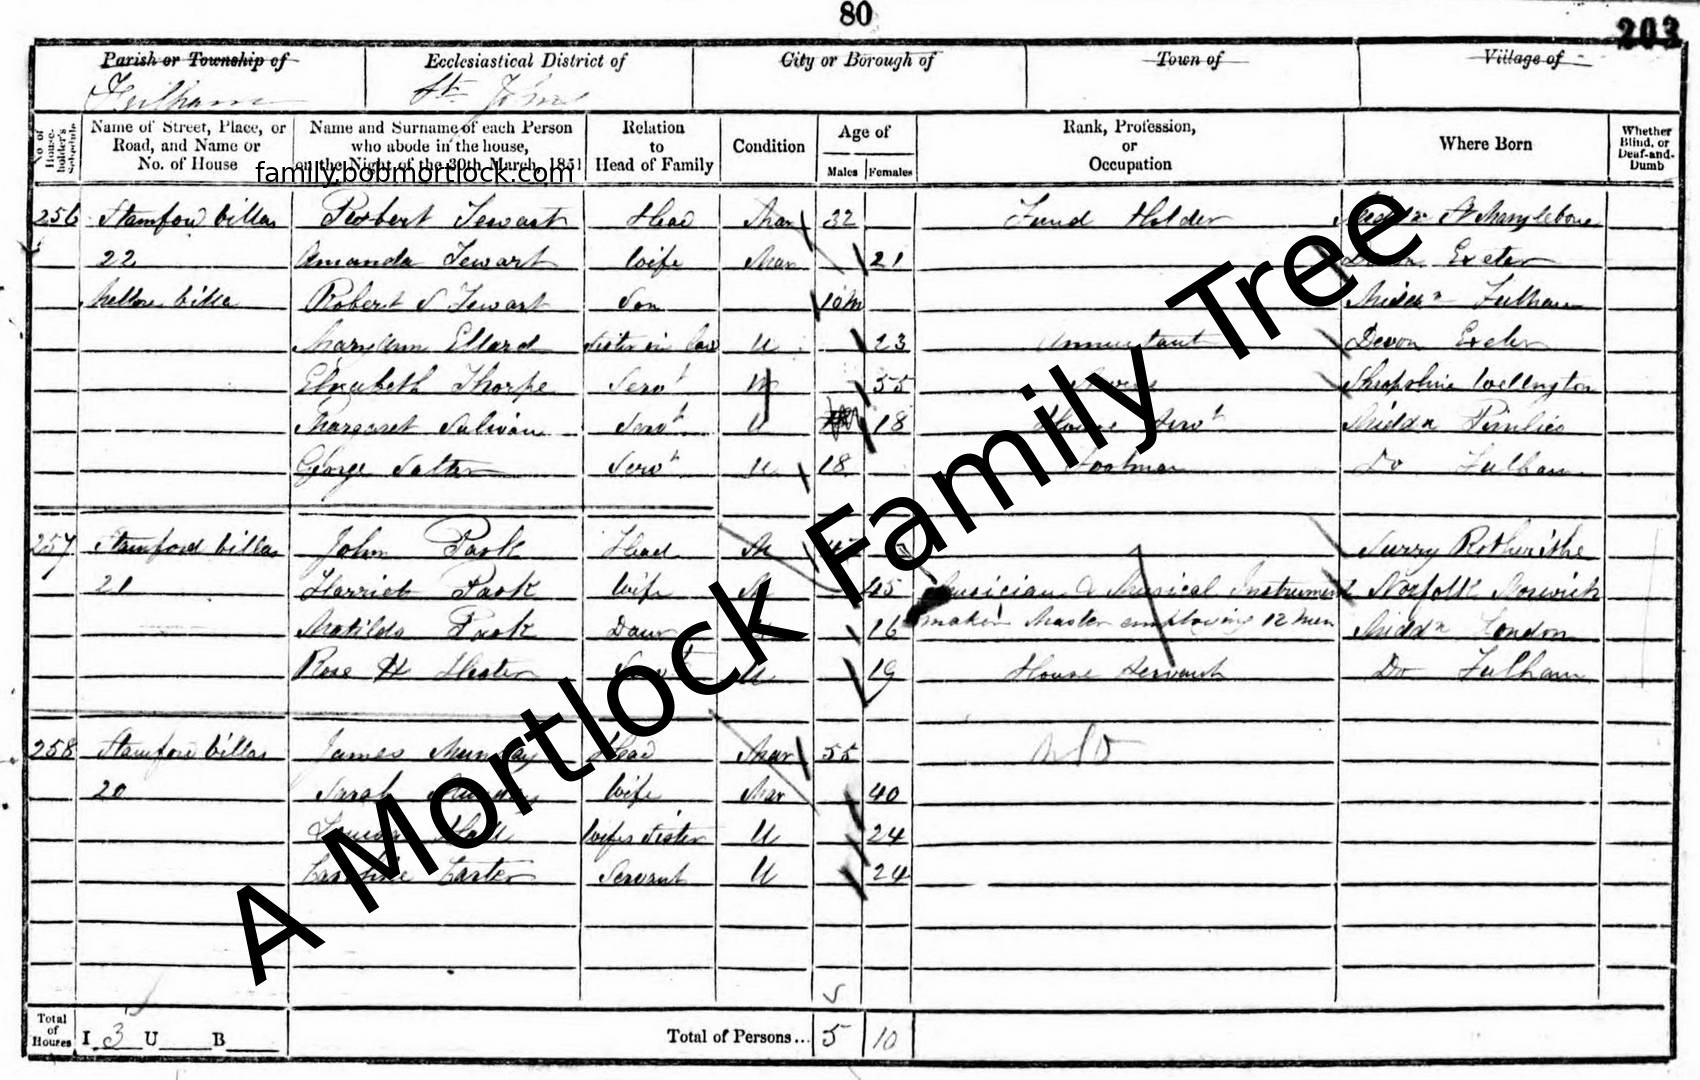 80
203
Parish or Township of Ecclesiastical District of City or Borough of Town of Village of
Fulham St Johns
No. of House-holder's Schedule Name of Street, Place, or Road, and Name or No. of House Name and Surname of each Person who abode in the house, on the Night of the 30th March, 1851 Relation to Head of Family Condition Age of Males Females Rank, Profession, or Occupation Where Born Whether Blind, or Deaf-and-Dumb
family.bobmortlock.com
256 Stamford Villas Robert Tewart Head Mar 32 Fund Holder St Marylebone
22 Amanda Tewart Wife Mar 21 Exeter
Villa Robert S Tewart Son 10m Fulham
Mary Ann Ellard Sister in law U 23 Annuitant Devon Exeter
Elizabeth Thorpe Servt 55 Shropshire Wellington
Margaret Sulivan Servt U 18 House Servt Middx Pimlico
George Salter Servt U 18 Footman Do Fulham
257 Stamford Villas John Pask Head M Surry Rotherithe
21 Harriet Pask Wife M 45 Musician & Musical Instrument Norfolk Norwich
Matilda Pask Daur 16 maker Master employing 12 men Middx London
Rose H U 19 House Servant Do Fulham
258 Stamford Villas James Head Mar 55
20 Sarah Wife Mar 40
Wifes Sister U 24
Carter Servant U 24
A Mortlock Family Tree
Total of Houses I 3 U B Total of Persons... 5 10